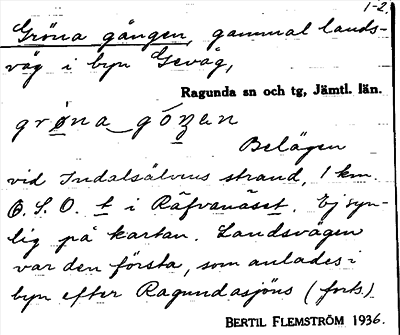 1-2.
Gröna gången, gammal lands-
väg i byn Gevåg,
Ragunda sn och tg, Jämtl. län.
grøna_góŋen
Belägen
vid Indalsälvens strand, 1 km.
O.S.O. t i Räfvanäset. Ej syn-
lig på kartan. Landsvägen
var den första, som anlades i
byn efter Ragundasjöns (forts.)
BERTIL FLEMSTRÖM 1936.